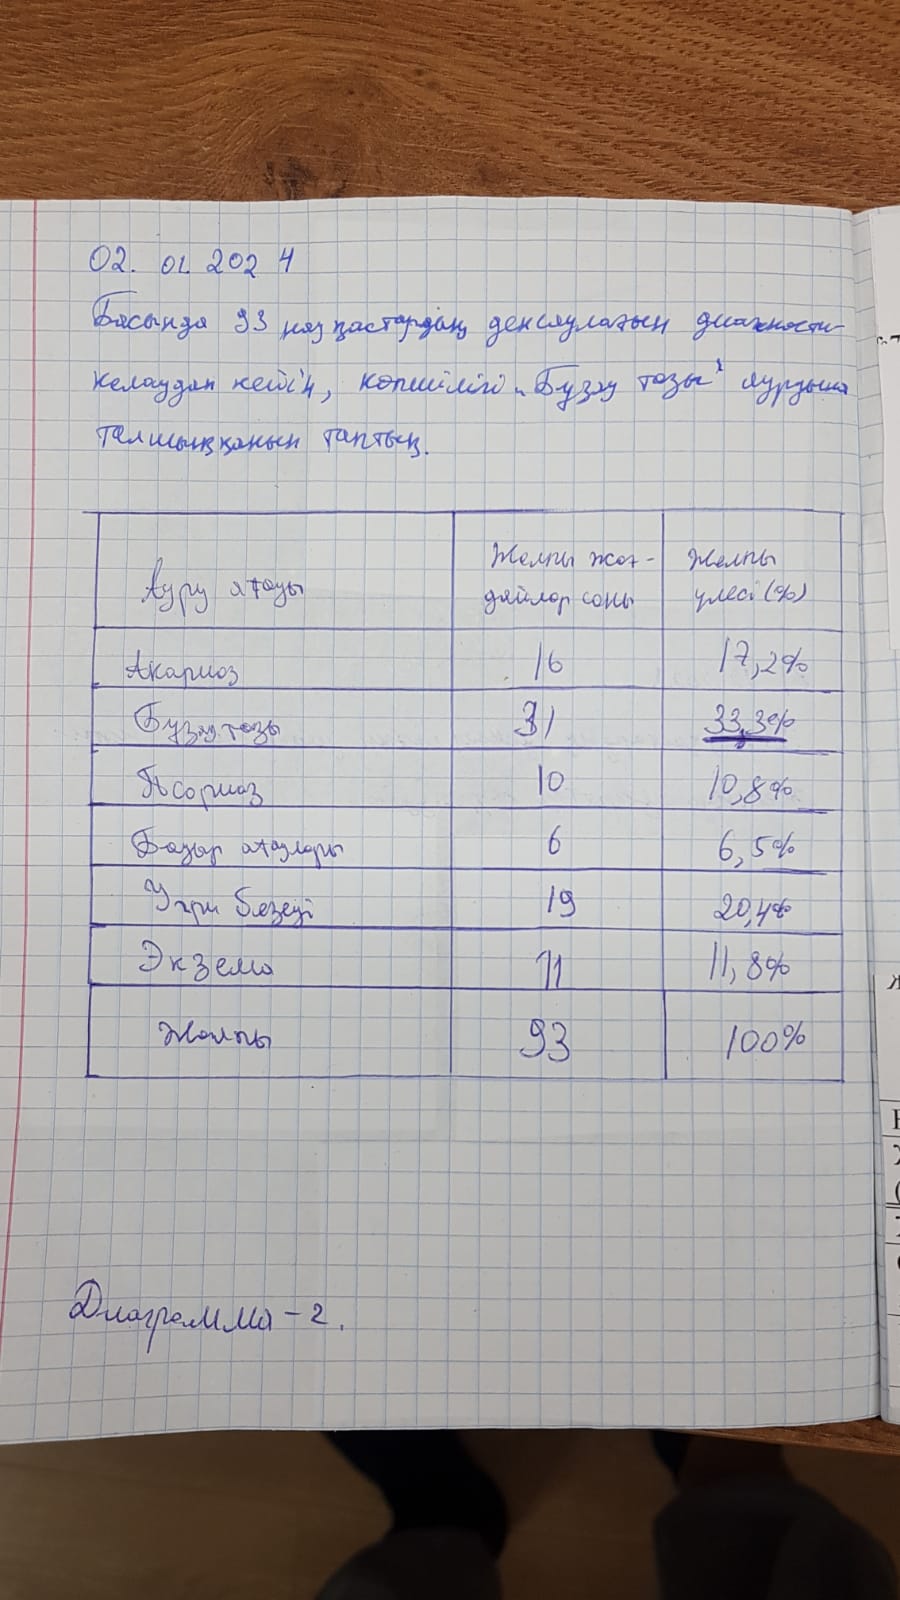 02. 01. 2024
Басында 93 науқастардың денсаулығын диагности-
келаудан кейін, көпшілігі „Бұзау тазы" ауруына
талшыққанын таптық.
Ауру атауы
Жалпы жағ-
дайлар саны
Жалпы
үлесі (%)
Акариоз 16 17,2%
Бұзау тазы 31 33,3%
Псориоз 10 10,8%
6 6,5%
19 20,4%
Экзема 11 11,8%
Жалпы 93 100%
Диаграмма-2.